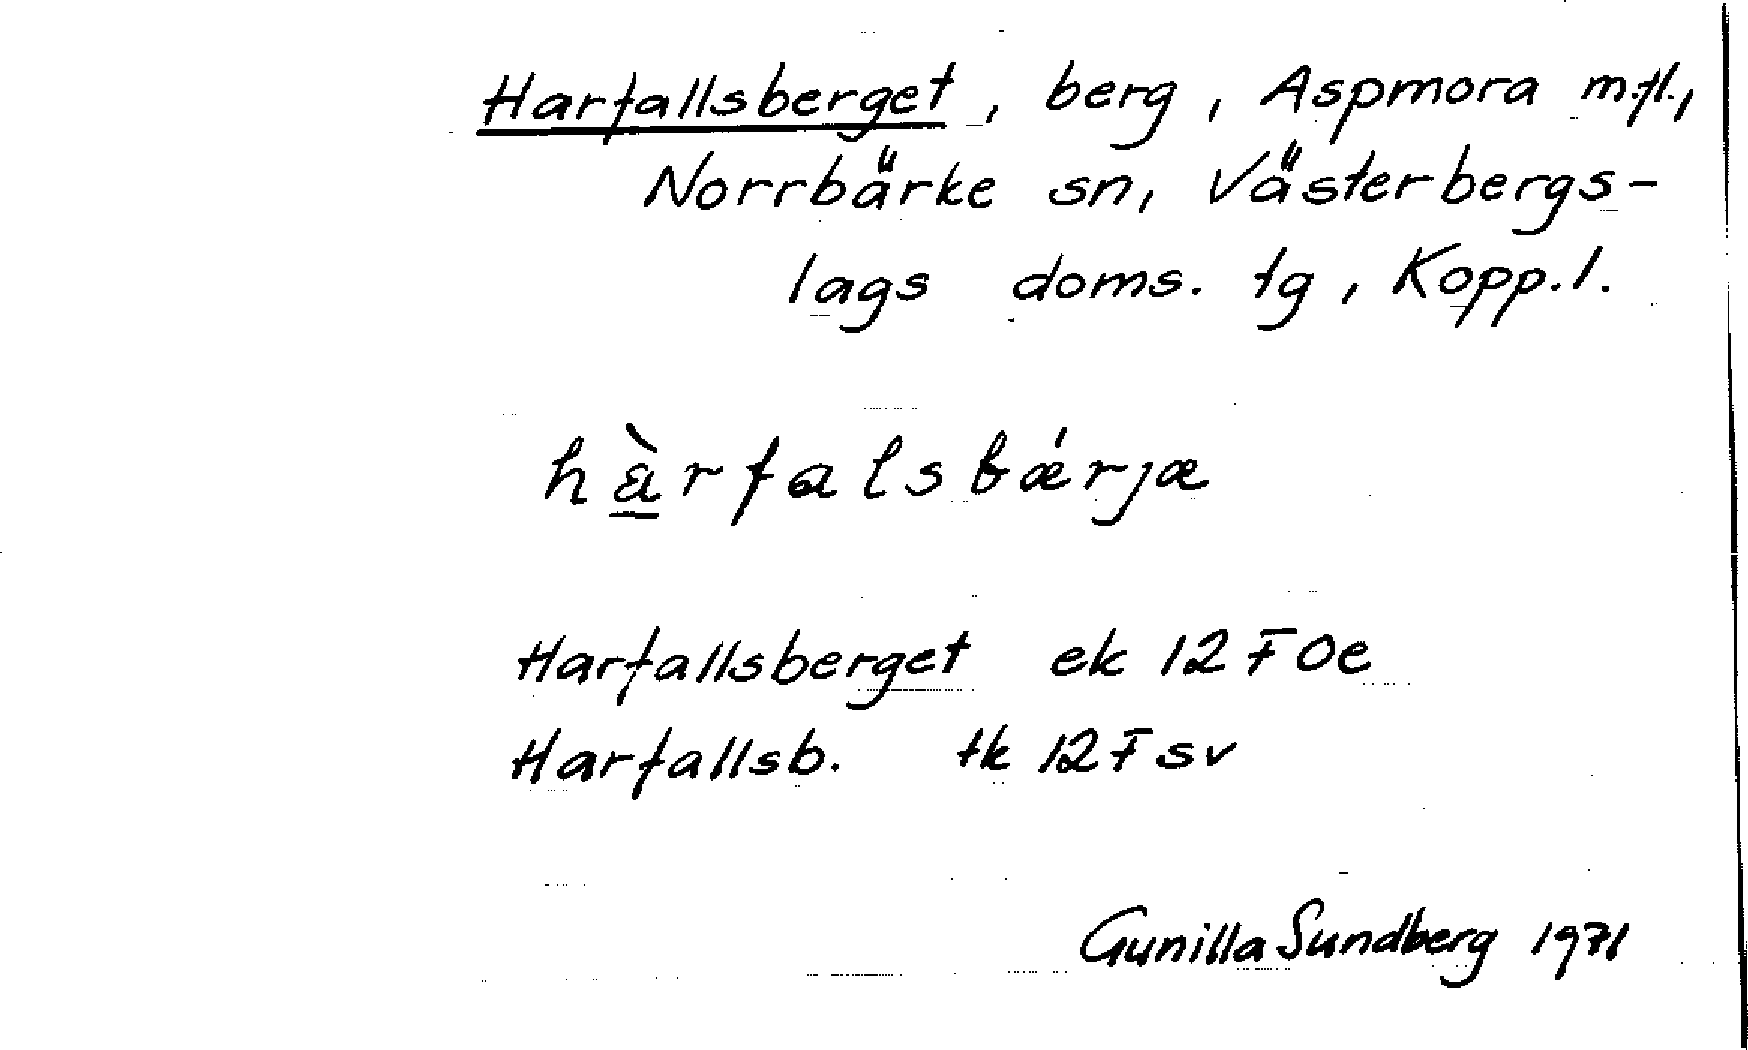 Harfallsberget, berg, Aspmora m.fl.,
Norrbärke sn, Västerbergs-
lags doms. tg, Kopp.l.
hàrfalsbǽrjæ
Harfallsberget ek 12F0e
Harfallsb. tk 12F sv
Gunilla Sundberg 1971